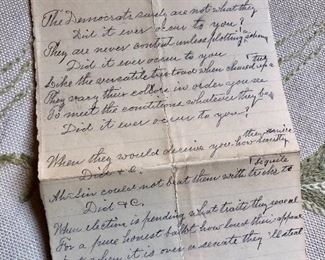 The Democrats surely are not what they
Did it ever occur to you?
They are never content unless plotting a
Did it ever occur to you
Like the versatile tree toad when
They vary their colors in order you see
To meet the conditions whatever they be
Did it ever occur to you?
When they would deceive you how
Did & C.
Ah Sin could not beat them with tricks to
Did & C.
When election is pending what traits they reveal
For a pure honest ballot how loud their appeal
when it is over a senate they'll steal